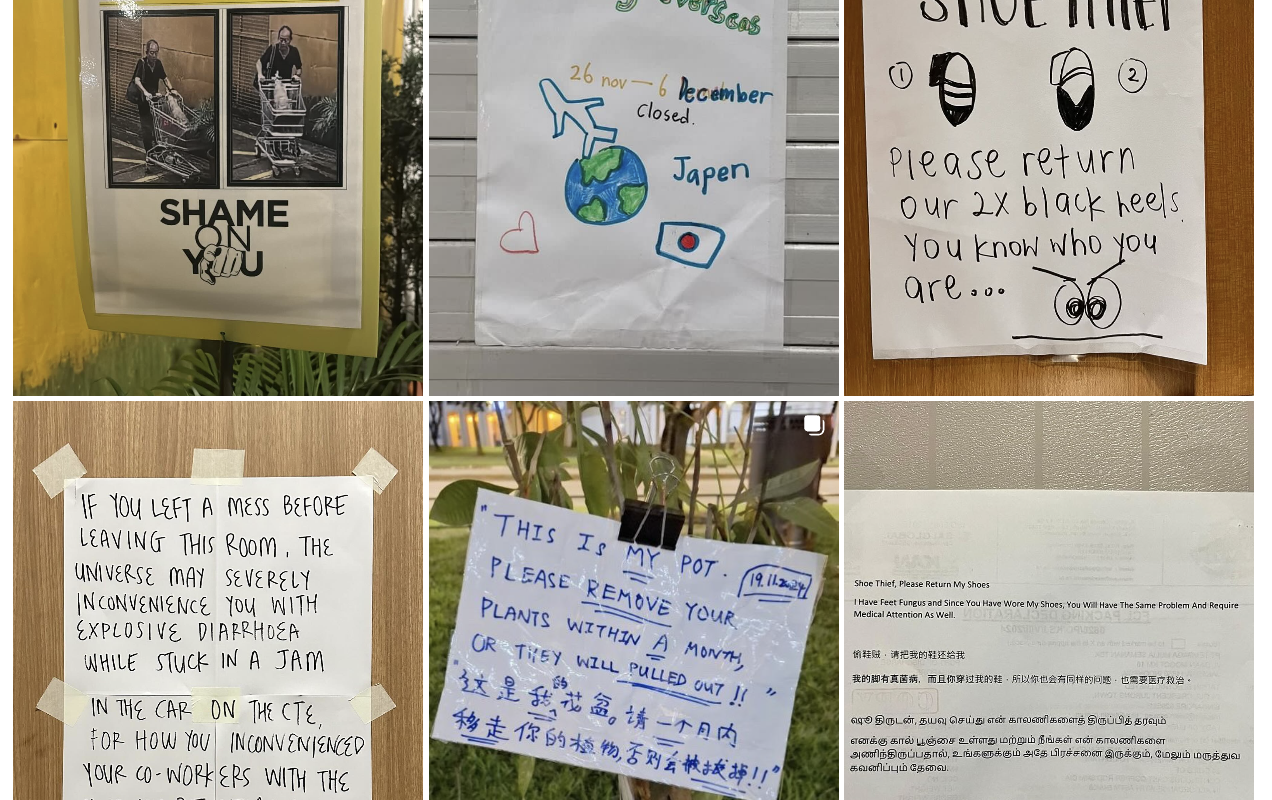 SHAME
ON
YOU
overseas
26 nov — 6 December
Closed.
Japen
SHOE THIEF
1
2
Please return
our 2X black heels.
You know who you
are...
IF YOU LEFT A MESS BEFORE
LEAVING THIS ROOM, THE
UNIVERSE MAY SEVERELY
INCONVENIENCE YOU WITH
EXPLOSIVE DIARRHOEA
WHILE STUCK IN A JAM
IN THE CAR ON THE CTE,
FOR HOW YOU INCONVENIENCED
YOUR CO-WORKERS WITH THE
"THIS IS MY POT.
19.11.2024
PLEASE REMOVE YOUR
PLANTS WITHIN A MONTH,
OR THEY WILL PULLED OUT!!"
"这是我的花盆。请一个月内
移走你的植物,否则会被拔掉!!"
Shoe Thief, Please Return My Shoes
I Have Feet Fungus and Since You Have Wore My Shoes, You Will Have The Same Problem And Require
Medical Attention As Well.
偷鞋贼，请把我的鞋还给我
我的脚有真菌病，而且你穿过我的鞋，所以你也会有同样的问题，也需要医疗救治。
ஷூ திருடன், தயவு செய்து என் காலணிகளைத் திருப்பித் தரவும்
எனக்கு கால் பூஞ்சை உள்ளது மற்றும் நீங்கள் என் காலணிகளை
அணிந்திருப்பதால், உங்களுக்கும் அதே பிரச்சனை இருக்கும், மேலும் மருத்துவ
கவனிப்பும் தேவை.